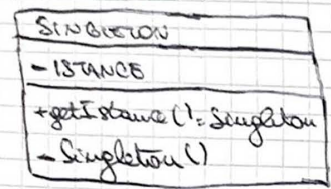 SINGLETON
- ISTANCE
+ getIstance(): Singleton
- Singleton()